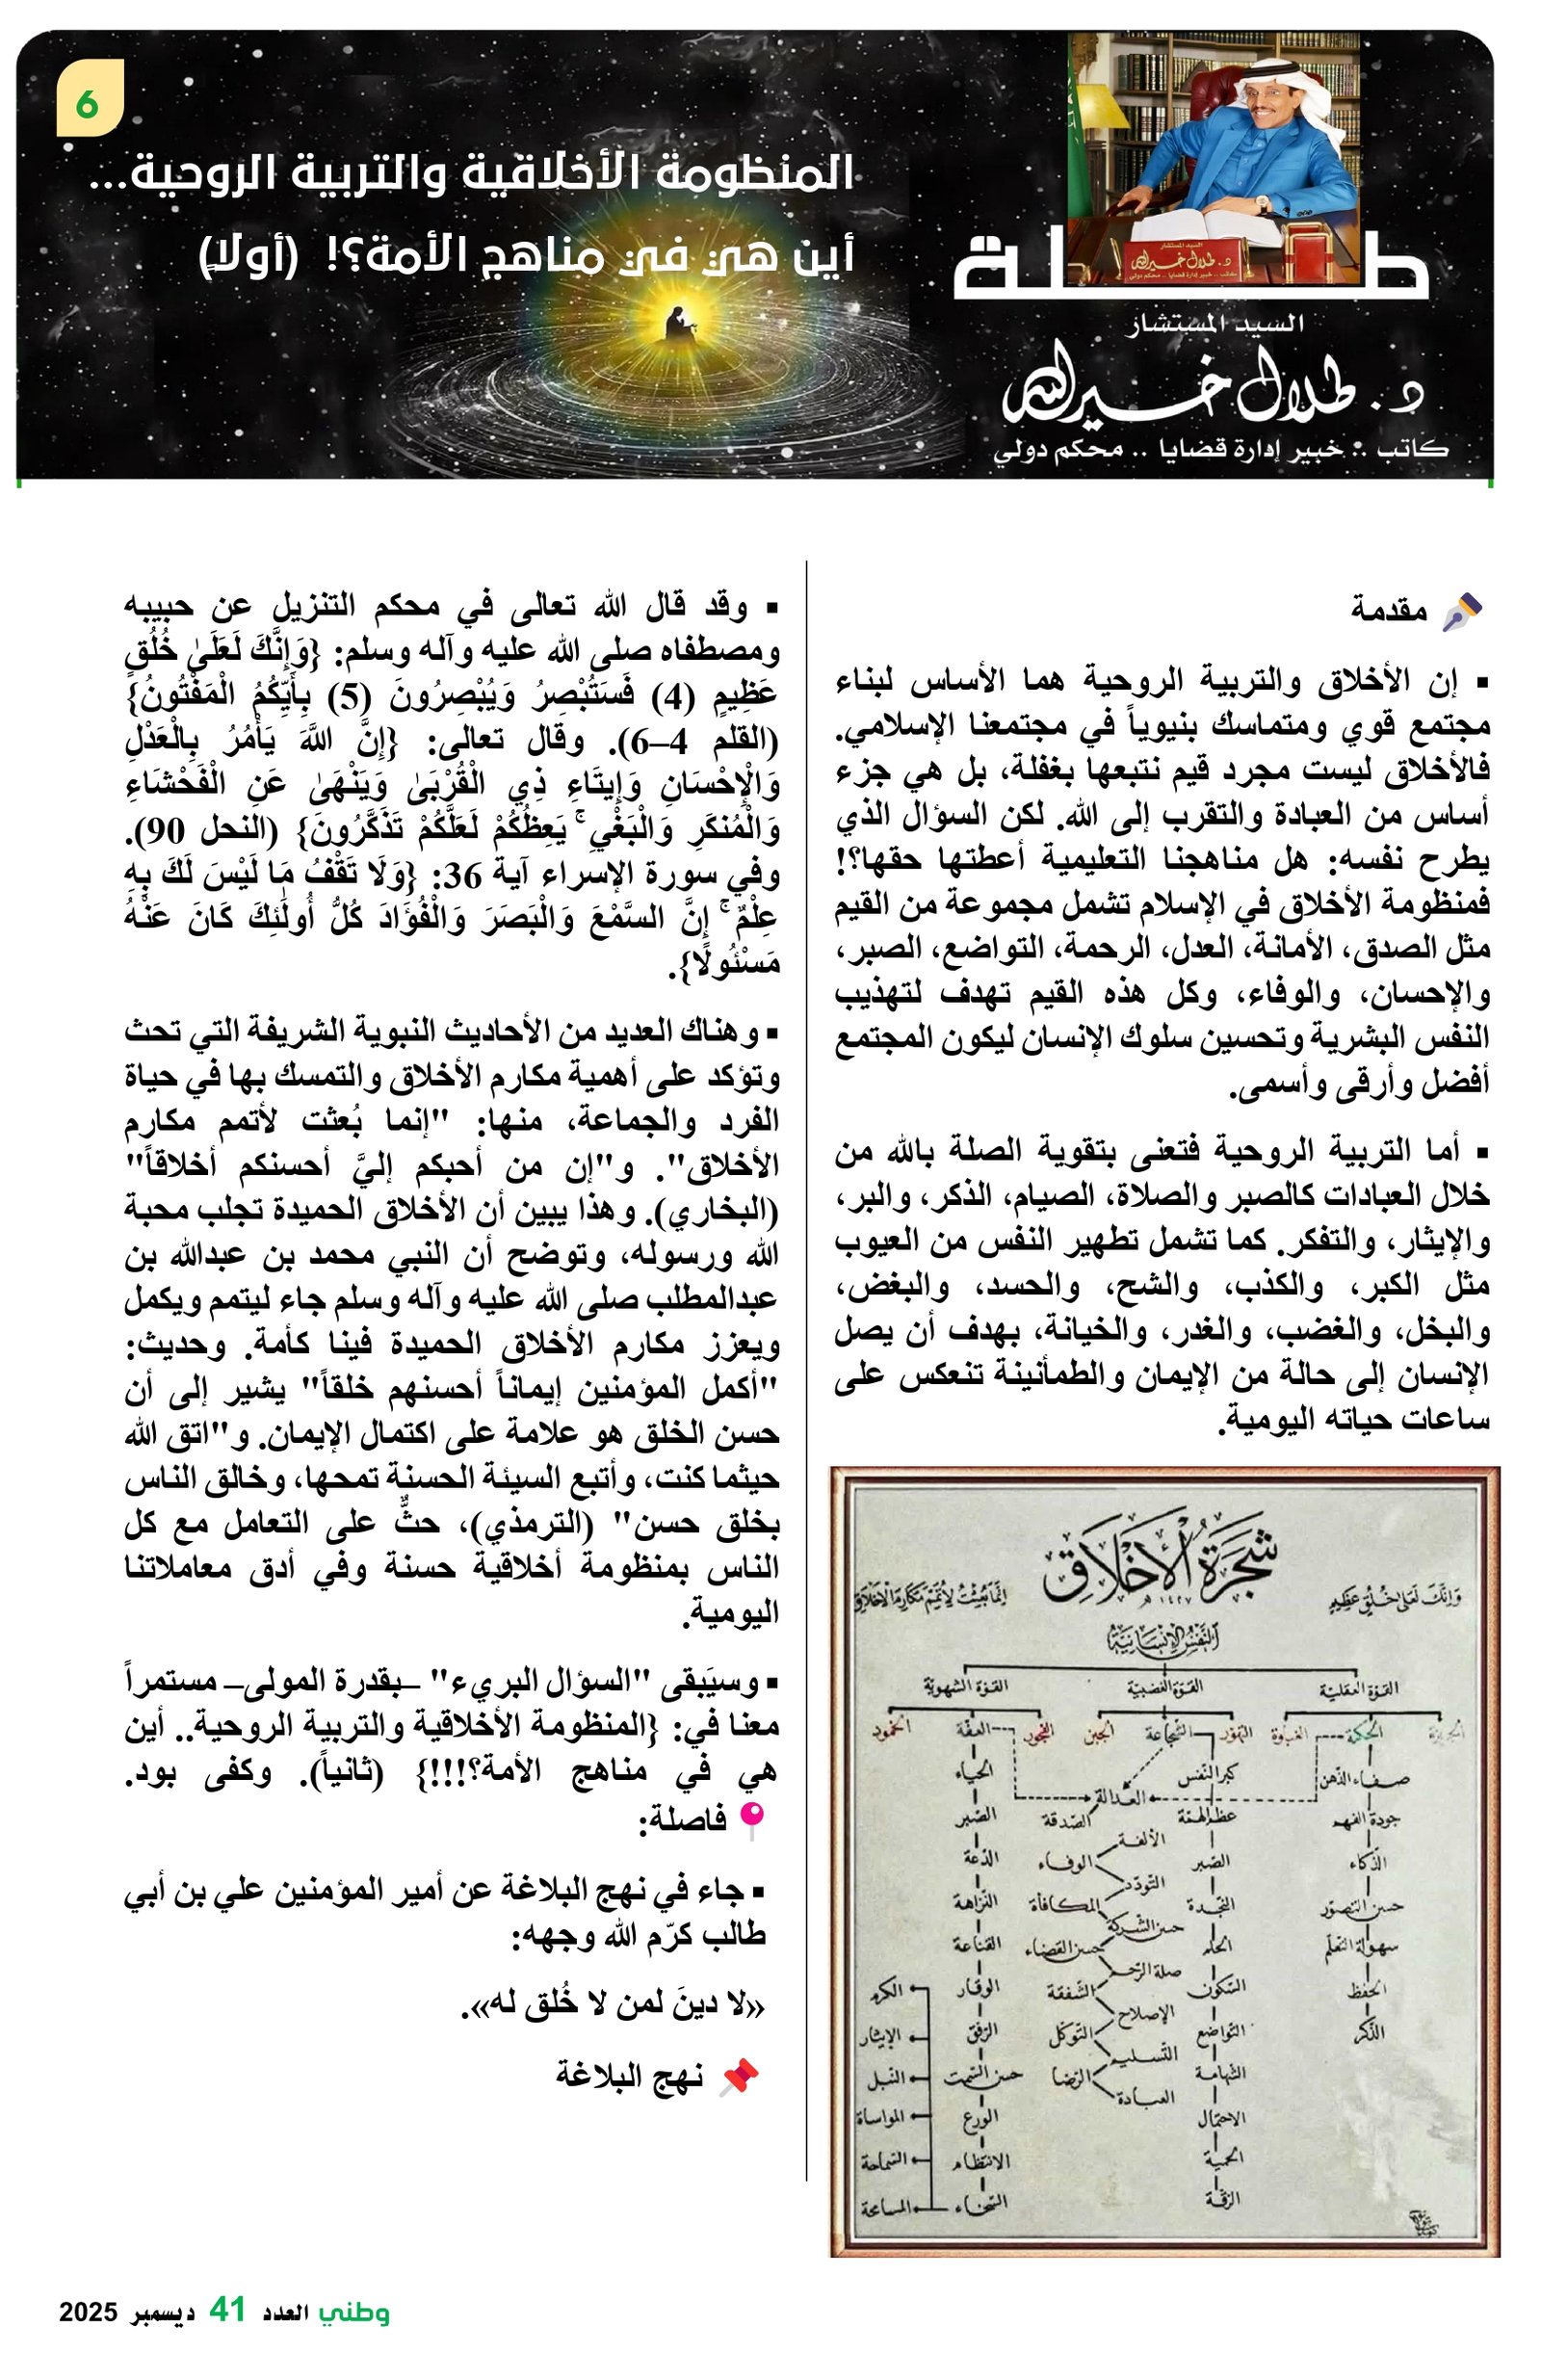 6
المنظومة الأخلاقية والتربية الروحية...
أين هي في مناهج الأمة؟! (أولاً)
طلة
السيد المستشار
د. طلال خيرالله
كاتب .: خبير إدارة قضايا .. محكم دولي
مقدمة
▪ إن الأخلاق والتربية الروحية هما الأساس لبناء
مجتمع قوي ومتماسك بنيوياً في مجتمعنا الإسلامي.
فالأخلاق ليست مجرد قيم نتبعها بغفلة، بل هي جزء
أساس من العبادة والتقرب إلى الله. لكن السؤال الذي
يطرح نفسه: هل مناهجنا التعليمية أعطتها حقها؟!
فمنظومة الأخلاق في الإسلام تشمل مجموعة من القيم
مثل الصدق، الأمانة، العدل، الرحمة، التواضع، الصبر،
والإحسان، والوفاء، وكل هذه القيم تهدف لتهذيب
النفس البشرية وتحسين سلوك الإنسان ليكون المجتمع
أفضل وأرقى وأسمى.
▪ أما التربية الروحية فتعنى بتقوية الصلة بالله من
خلال العبادات كالصبر والصلاة، الصيام، الذكر، والبر،
والإيثار، والتفكر. كما تشمل تطهير النفس من العيوب
مثل الكبر، والكذب، والشح، والحسد، والبغض،
والبخل، والغضب، والغدر، والخيانة، بهدف أن يصل
الإنسان إلى حالة من الإيمان والطمأنينة تنعكس على
ساعات حياته اليومية.
شجرة الأخلاق
١٤٢٧ هـ
وإنك لعلى خلق عظيم
إنما بعثت لأتمم مكارم الأخلاق
النفس الإنسانية
القوة العقلية القوة الغضبية القوة الشهوية
الجربزة الحكمة الغباوة التهور الشجاعة الجبن الفجور العفة الخمود
صفاء الذهن كبر النفس الحياء
العدالة
جودة الفهم عظم الهمة الصداقة الصبر
الألفة
الذكاء الصبر الوفاء الدعة
التودد
حسن التصور النجدة المكافأة النزاهة
حسن الشركة
سهولة التعلم الحلم حسن القضاء القناعة
صلة الرحم
الحفظ السكون الشفقة الوقار الكرم
الإصلاح
الذكر التواضع التوكل الرفق الإيثار
التسليم
الشهامة الرضا حسن السمت النبل
العبادة
الاحتمال الورع المواساة
الحمية الانتظام السماحة
الرقة السخاء المسامحة
▪ وقد قال الله تعالى في محكم التنزيل عن حبيبه
ومصطفاه صلى الله عليه وآله وسلم: {وَإِنَّكَ لَعَلَىٰ خُلُقٍ
عَظِيمٍ (4) فَسَتُبْصِرُ وَيُبْصِرُونَ (5) بِأَيِّكُمُ الْمَفْتُونُ}
(القلم 4–6). وقال تعالى: {إِنَّ اللَّهَ يَأْمُرُ بِالْعَدْلِ
وَالْإِحْسَانِ وَإِيتَاءِ ذِي الْقُرْبَىٰ وَيَنْهَىٰ عَنِ الْفَحْشَاءِ
وَالْمُنكَرِ وَالْبَغْيِ ۚ يَعِظُكُمْ لَعَلَّكُمْ تَذَكَّرُونَ} (النحل 90).
وفي سورة الإسراء آية 36: {وَلَا تَقْفُ مَا لَيْسَ لَكَ بِهِ
عِلْمٌ ۚ إِنَّ السَّمْعَ وَالْبَصَرَ وَالْفُؤَادَ كُلُّ أُولَٰئِكَ كَانَ عَنْهُ
مَسْئُولًا}.
▪ وهناك العديد من الأحاديث النبوية الشريفة التي تحث
وتؤكد على أهمية مكارم الأخلاق والتمسك بها في حياة
الفرد والجماعة، منها: "إنما بُعثت لأتمم مكارم
الأخلاق". و"إن من أحبكم إليَّ أحسنكم أخلاقاً"
(البخاري). وهذا يبين أن الأخلاق الحميدة تجلب محبة
الله ورسوله، وتوضح أن النبي محمد بن عبدالله بن
عبدالمطلب صلى الله عليه وآله وسلم جاء ليتمم ويكمل
ويعزز مكارم الأخلاق الحميدة فينا كأمة. وحديث:
"أكمل المؤمنين إيماناً أحسنهم خلقاً" يشير إلى أن
حسن الخلق هو علامة على اكتمال الإيمان. و"اتق الله
حيثما كنت، وأتبع السيئة الحسنة تمحها، وخالق الناس
بخلق حسن" (الترمذي)، حثٌّ على التعامل مع كل
الناس بمنظومة أخلاقية حسنة وفي أدق معاملاتنا
اليومية.
▪ وسيَبقى "السؤال البريء" –بقدرة المولى– مستمراً
معنا في: {المنظومة الأخلاقية والتربية الروحية.. أين
هي في مناهج الأمة؟!!!} (ثانياً). وكفى بود.
فاصلة:
▪ جاء في نهج البلاغة عن أمير المؤمنين علي بن أبي
طالب كرّم الله وجهه:
«لا دينَ لمن لا خُلق له».
نهج البلاغة
وطني العدد 41 ديسمبر 2025